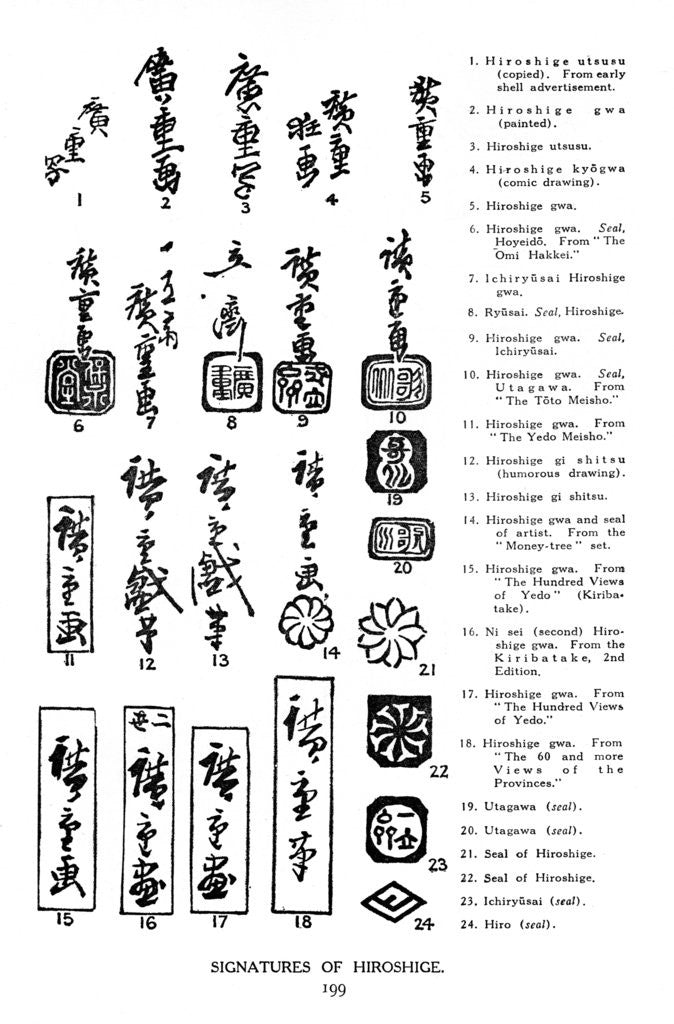 廣重写
1
廣重画
2
廣重写
3
廣重
狂画
4
廣重画
5
廣重画
保永堂
6
一立斎
廣重画
7
立齋
廣重
8
廣重画
一立斎
9
廣重画
歌川
10
廣重画
11
廣重戯筆
12
廣重戯筆
13
廣重画
14
歌川
19
歌川
20
21
廣重画
15
二世
廣重画
16
廣重画
17
廣重筆
18
22
一立斎
23
24
1. Hiroshige utsusu
(copied). From early
shell advertisement.
2. Hiroshige gwa
(painted).
3. Hiroshige utsusu.
4. Hiroshige kyōgwa
(comic drawing).
5. Hiroshige gwa.
6. Hiroshige gwa. Seal,
Hoyeidō. From "The
Ōmi Hakkei."
7. Ichiryūsai Hiroshige
gwa.
8. Ryūsai. Seal, Hiroshige.
9. Hiroshige gwa. Seal,
Ichiryūsai.
10. Hiroshige gwa. Seal,
Utagawa. From
"The Tōto Meisho."
11. Hiroshige gwa. From
"The Yedo Meisho."
12. Hiroshige gi shitsu
(humorous drawing).
13. Hiroshige gi shitsu.
14. Hiroshige gwa and seal
of artist. From the
"Money-tree" set.
15. Hiroshige gwa. From
"The Hundred Views
of Yedo" (Kiriba-
take).
16. Ni sei (second) Hiro-
shige gwa. From the
Kiribatake, 2nd
Edition.
17. Hiroshige gwa. From
"The Hundred Views
of Yedo."
18. Hiroshige gwa. From
"The 60 and more
Views of the
Provinces."
19. Utagawa (seal).
20. Utagawa (seal).
21. Seal of Hiroshige.
22. Seal of Hiroshige.
23. Ichiryūsai (seal).
24. Hiro (seal).
SIGNATURES OF HIROSHIGE.
199